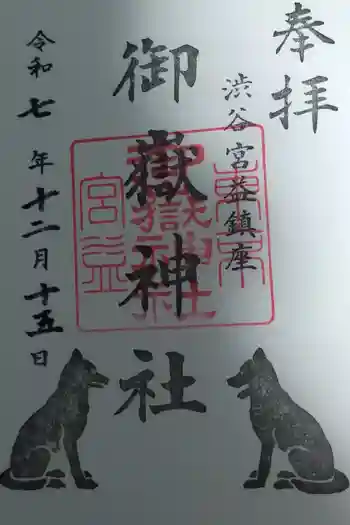 奉拝
渋谷宮益鎮座
御嶽神社
令和七年十二月十五日
東京
御嶽神社
宮益